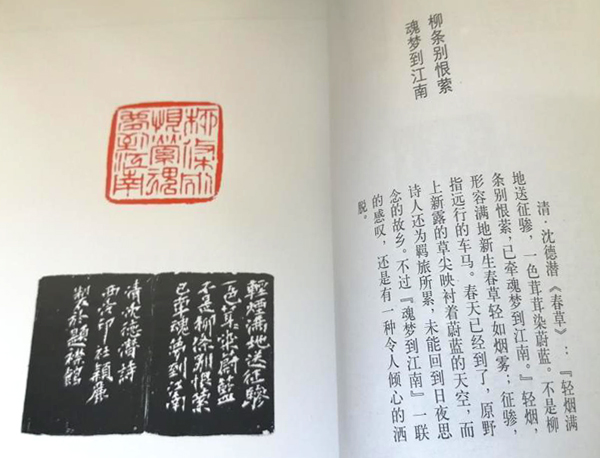 柳条别恨萦
魂梦到江南
清·沈德潜《春草》：『轻烟满
地送征骖，一色茸茸染蔚蓝。不是柳
条别恨萦，已牵魂梦到江南。』轻烟，
形容满地新生春草轻如烟雾；征骖，
指远行的车马。春天已经到了，原野
上新露的草尖映衬着蔚蓝的天空，而
诗人还为羁旅所累，未能回到日夜思
念的故乡。不过『魂梦到江南』一联
的感叹，还是有一种令人倾心的洒
脱。
柳條别
恨縈魂
夢到江南
輕煙滿地送征驂
一色茸茸染蔚藍
不是柳條别恨縈
已牵魂夢到江南
清沈德潛詩
西泠印社
製於題襟館